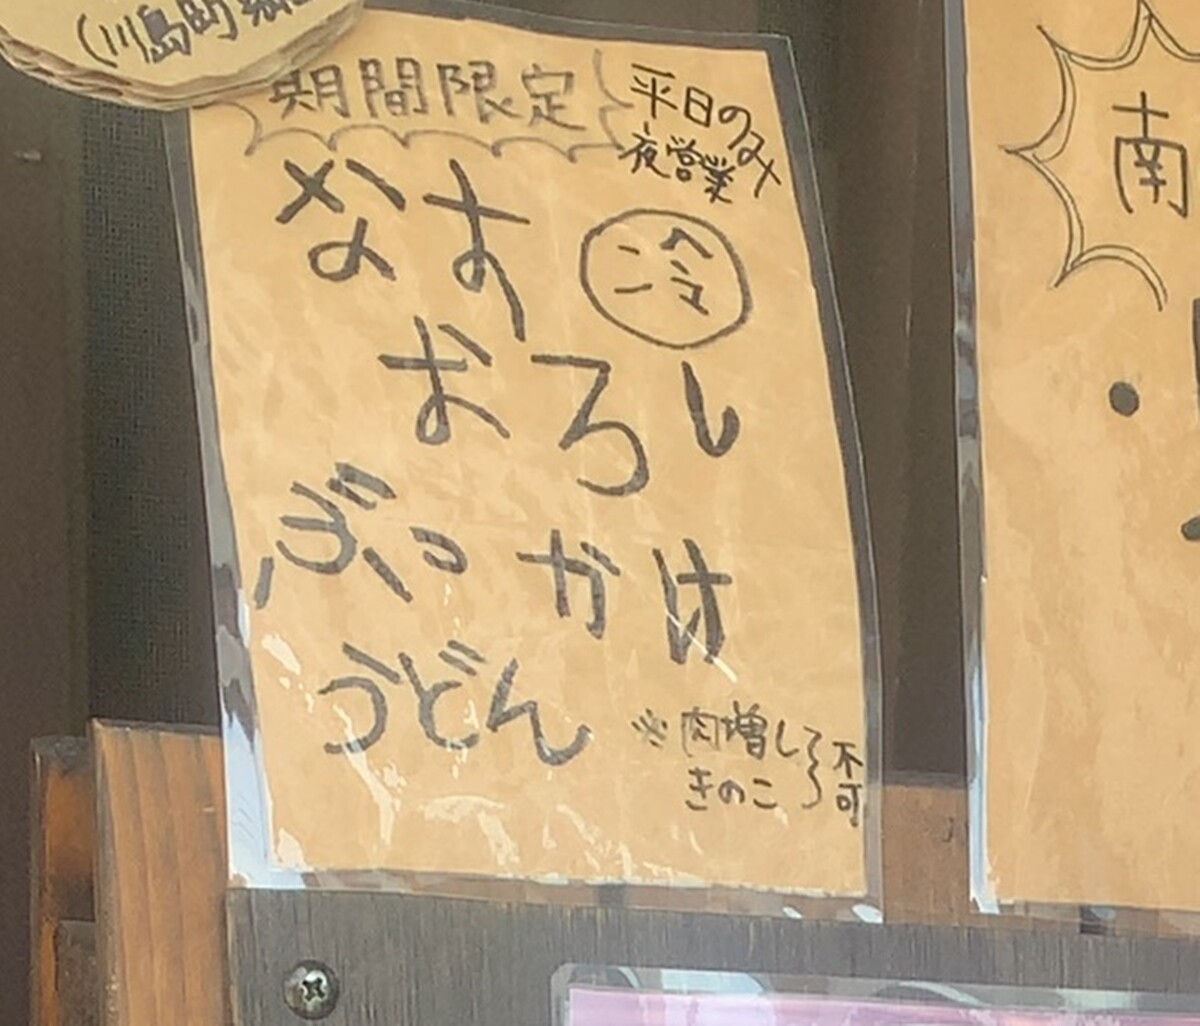 (川島町
期間限定
平日のみ
夜営業
なす
冷
おろし
ぶっかけ
うどん
※肉増し
きのこ
不可
南